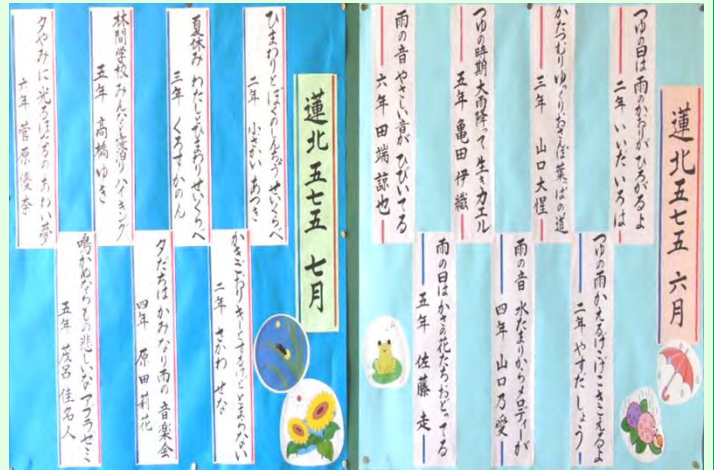 蓮北五七五 六月
つゆの日は 雨のかおりが ひろがるよ
二年 いいだ いろは
かたつむり ゆっくりおさんぽ 葉っぱの道
三年 山口 大惺
つゆの時期 大雨降って 生きカエル
五年 亀田 伊織
雨の音 やさしい音が ひびいてる
六年 田端 諒也
つゆの雨 かえるげこげこ きこえるよ
二年 やすだ しょう
雨の音 水たまりから メロディーが
四年 山口 乃愛
雨の日は かさの花たち おどってる
五年 佐藤 走
蓮北五七五 七月
ひまわりと ぼくのしんちょう せいくらべ
二年 小さか あつき
夏休み わたしとひまわり せいくらべ
三年 くろす かのん
林間学校 みんなと登り ハイキング
五年 高橋 ゆき
夕やみに 光るほたるの あわい夢
六年 菅原 優奈
かきごおり キーンとするけど とまらない
二年 さかわ せな
夕だちは かみなり雨の 音楽会
四年 原田 莉花
鳴かぬなら もの悲しいな アブラゼミ
五年 茂呂 佳名人